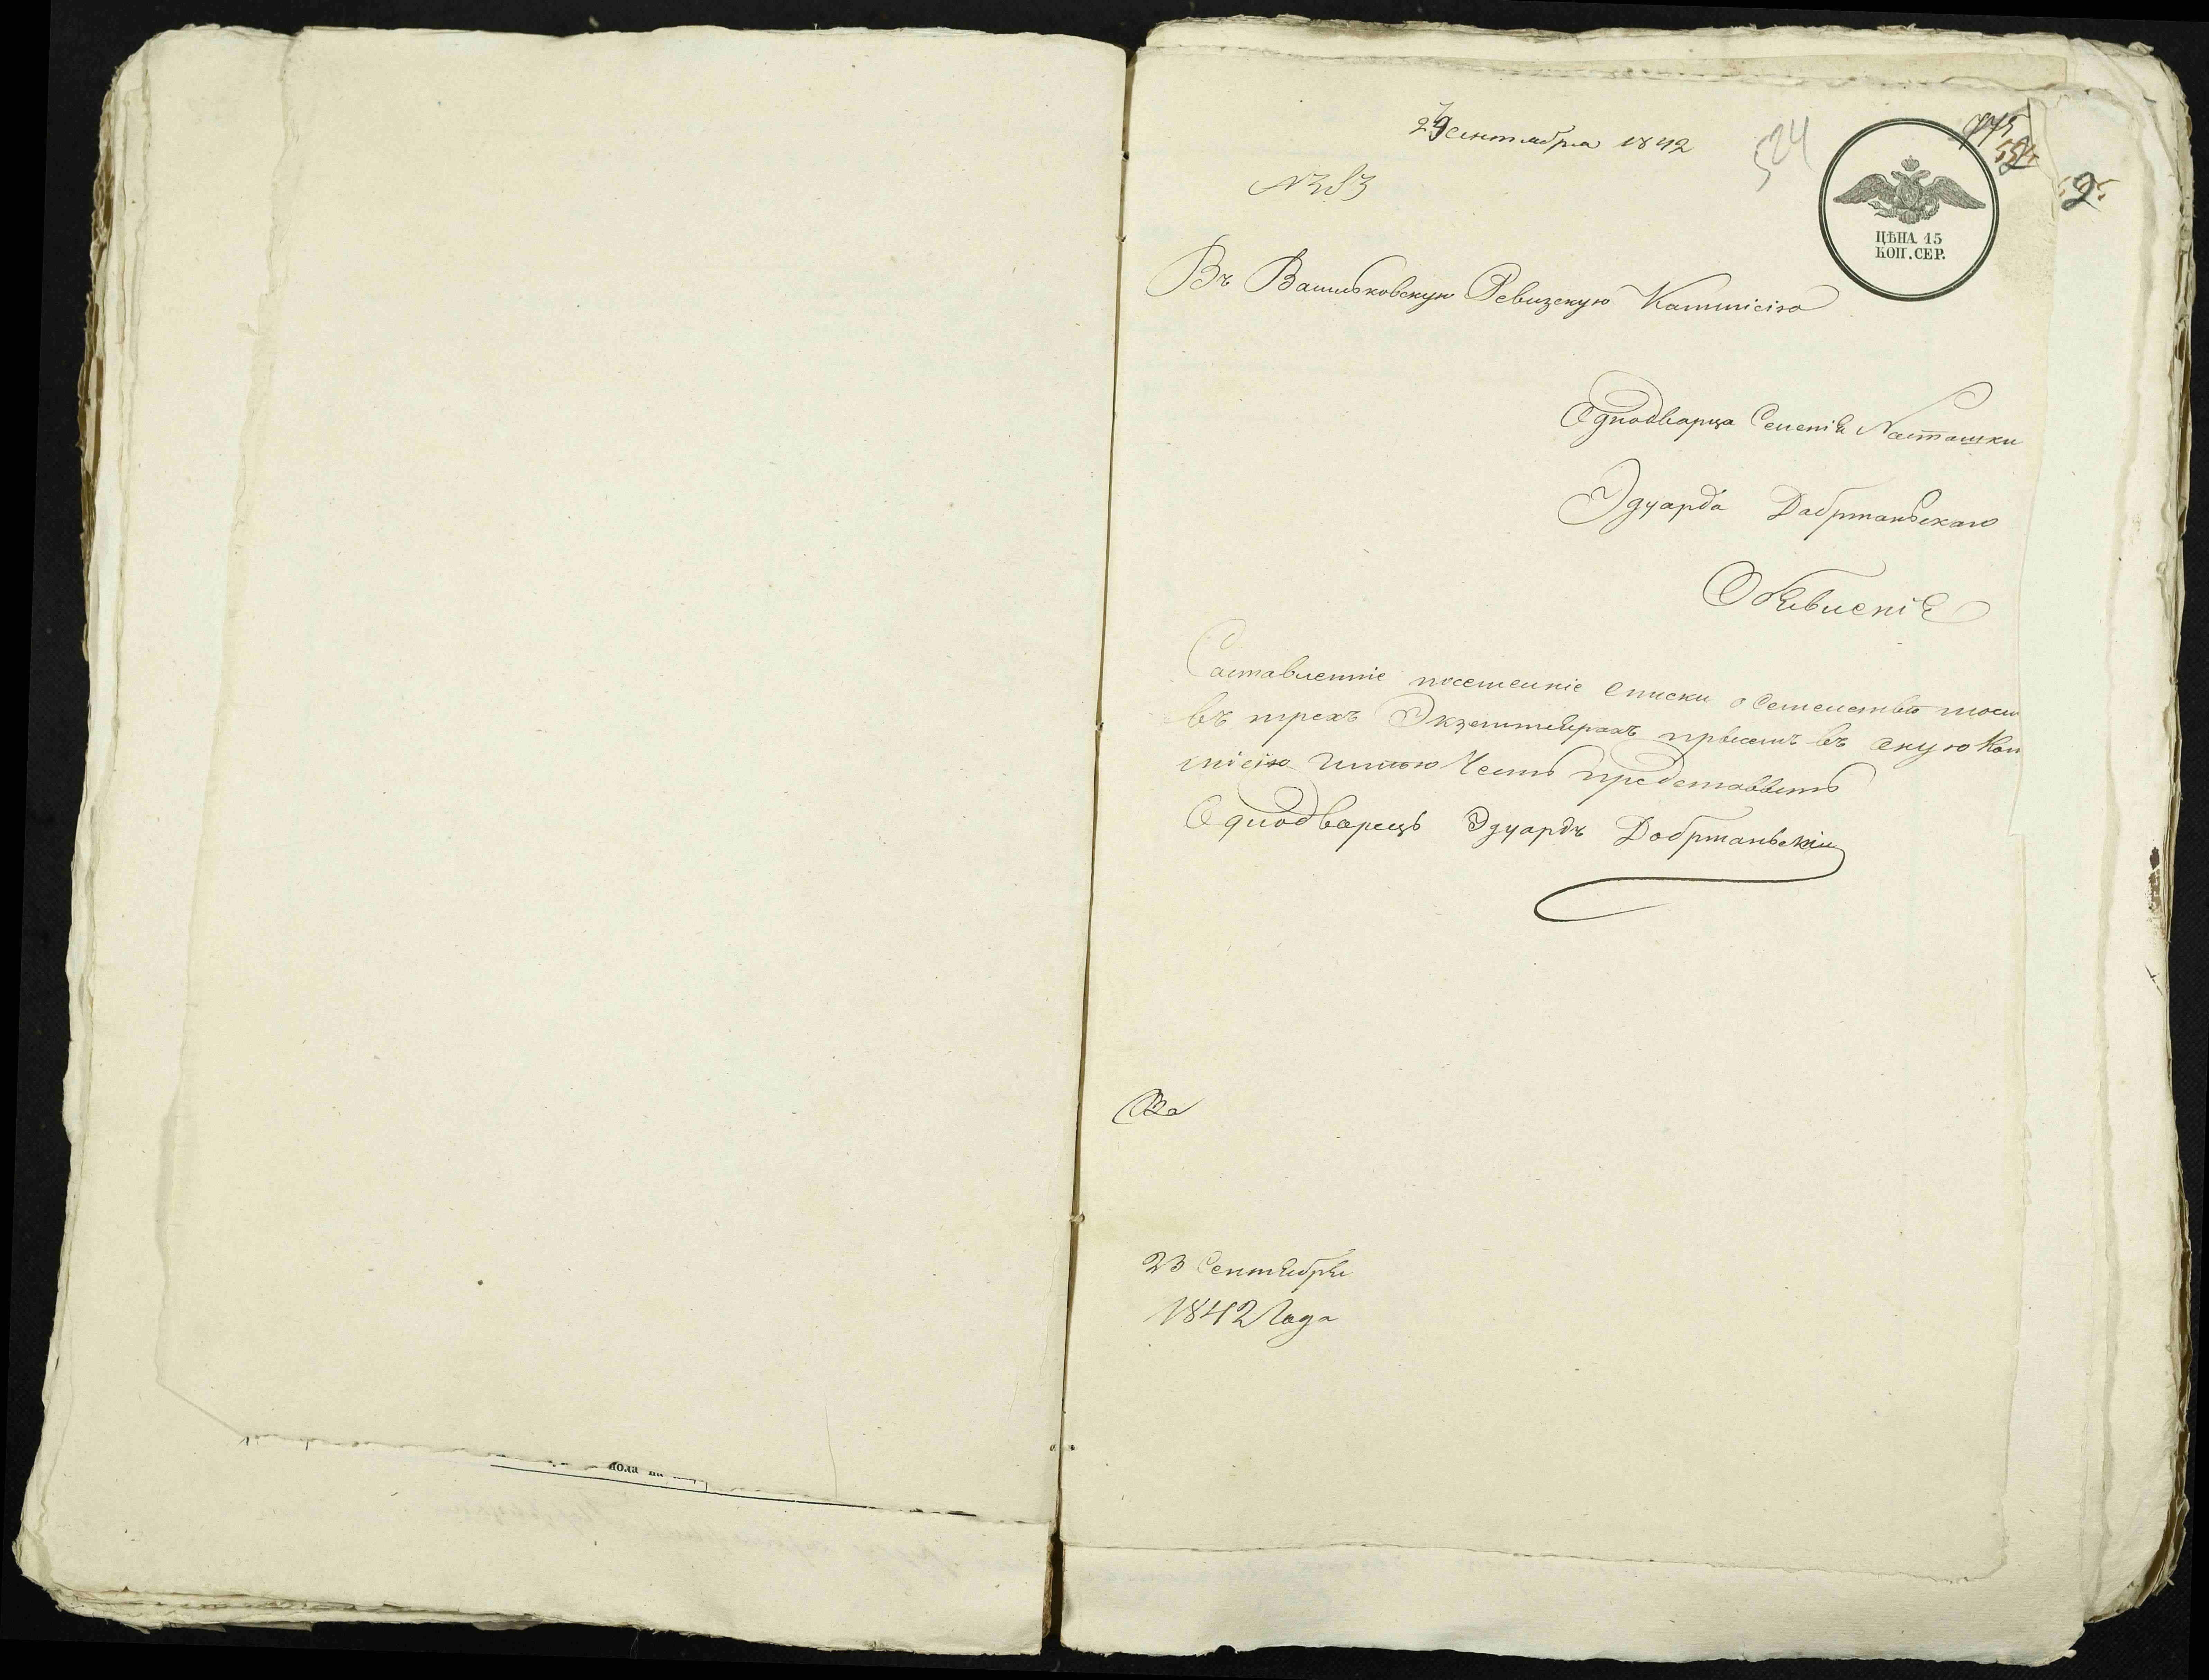 24 сентября 1842
524
ЦѢНА 15
КОП. СЕР.
Въ Васильковскую Ревизскую Каммисію
Однодварца Селенія Насташки
Эдуарда Добржаньскаго
Объявленіе
Саставленніе посемейніе списки о Семействе моем
въ трехъ Экземплярахъ при сем въ оную Ком
мисію имею Честь представить
Однодварець Эдуардъ Добржаньскій
23 Сентября
1842 Года
пола на